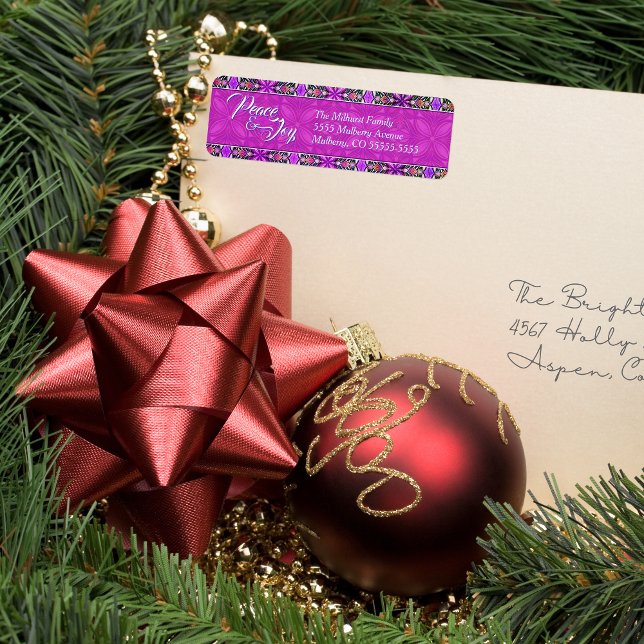 Peace
& Joy
The Milhurst Family
5555 Mulberry Avenue
Mulberry, CO 55555.5555
The Bright
4567 Holly
Aspen, C